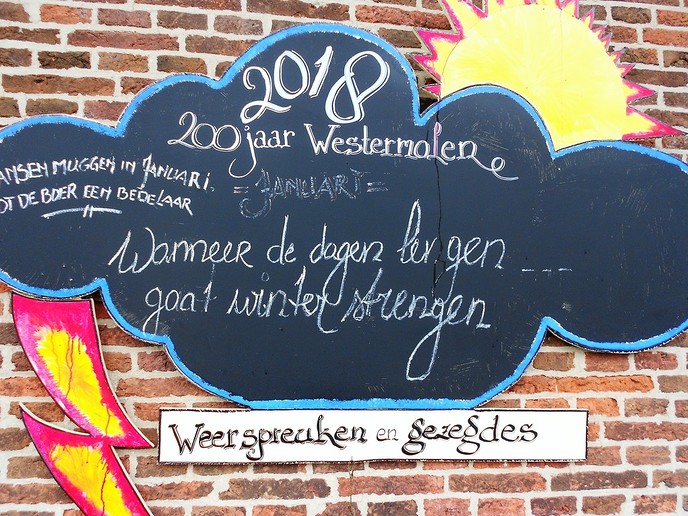 2018
200 jaar Westermolen
ANSEN MUGGEN IN JANUARI,
OT DE BOER EEN BEDELAAR
= JANUARI =
Wanneer de dagen lengen ---
gaat winter strengen
Weerspreuken en gezegdes